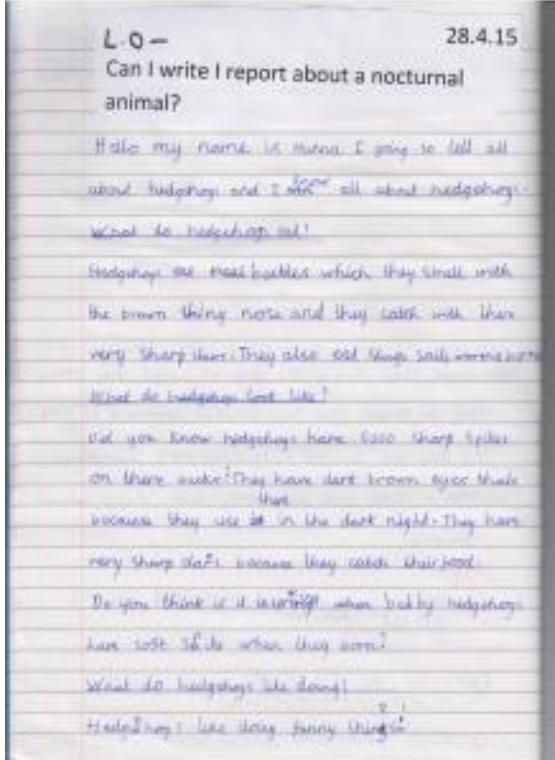 L.O –
28.4.15
Can I write I report about a nocturnal
animal?
Hello my name is I going to tell all
about hedgehogs and I all about hedgehogs.
What do hedgehogs eat!
Hedgehogs eat which they smell with
the brown thing nose and they catch with there
very sharp They also eat slugs worms
What do hedgehogs look like?
Did you know hedgehogs have 5000 sharp spikes
on there They have dark brown eyes
there
because they use in the dark night. They have
very sharp because they catch their food.
Do you think is it when hedgehogs
have soft when they born?
What do hedgehogs like doing!
like doing funny things